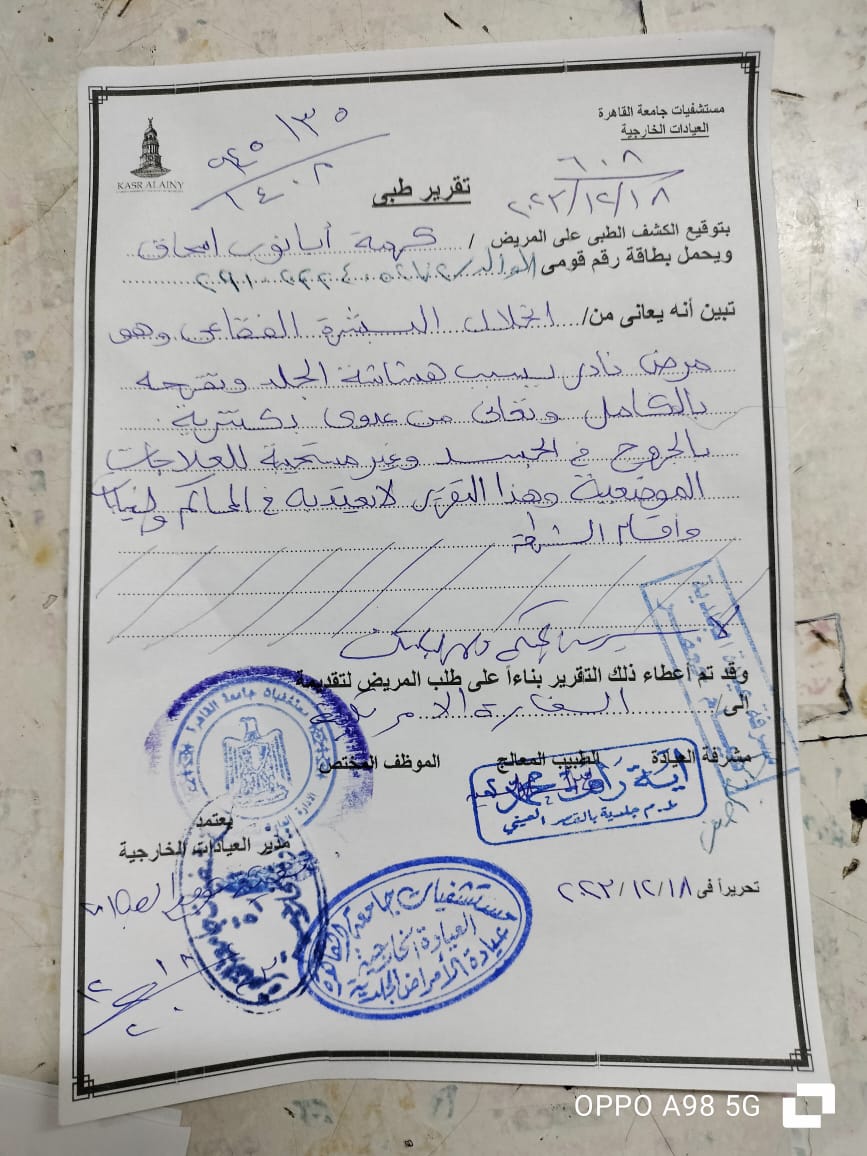 مستشفيات جامعة القاهرة
العيادات الخارجية
KASR ALAINY
٦٠٨
٢٠٢٣/١٢/١٨
تقرير طبى
بتوقيع الكشف الطبى على المريض / كهمة أبانوب اسحاق
ويحمل بطاقة رقم قومى
تبين أنه يعانى من/ انحلال البشرة الفقاعى وهو
مرض نادر يسبب هشاشة الجلد وتقرحه
بالكامل وتعانى من عدوى بكتيرية
بالجروح فى الجسد وغير مستجيبة للعلاجات
الموضعية وهذا التقرير لا يعتد به فى المحاكم والنيابات
وأقسام الشرطة
وقد تم أعطاء ذلك التقرير بناءاً على طلب المريض لتقديمة
إلى/ السفارة الأمريكية
مشرفة العيادة
الطبيب المعالج
الموظف المختص
آية رأفت محمد
جلدية بالقصر العينى
يعتمد
مدير العيادات الخارجية
تحريراً فى ٢٠٢٣/١٢/١٨
مستشفيات جامعة القاهرة
العيادة الخارجية
عيادة الأمراض الجلدية
مستشفيات جامعة القاهرة
OPPO A98 5G